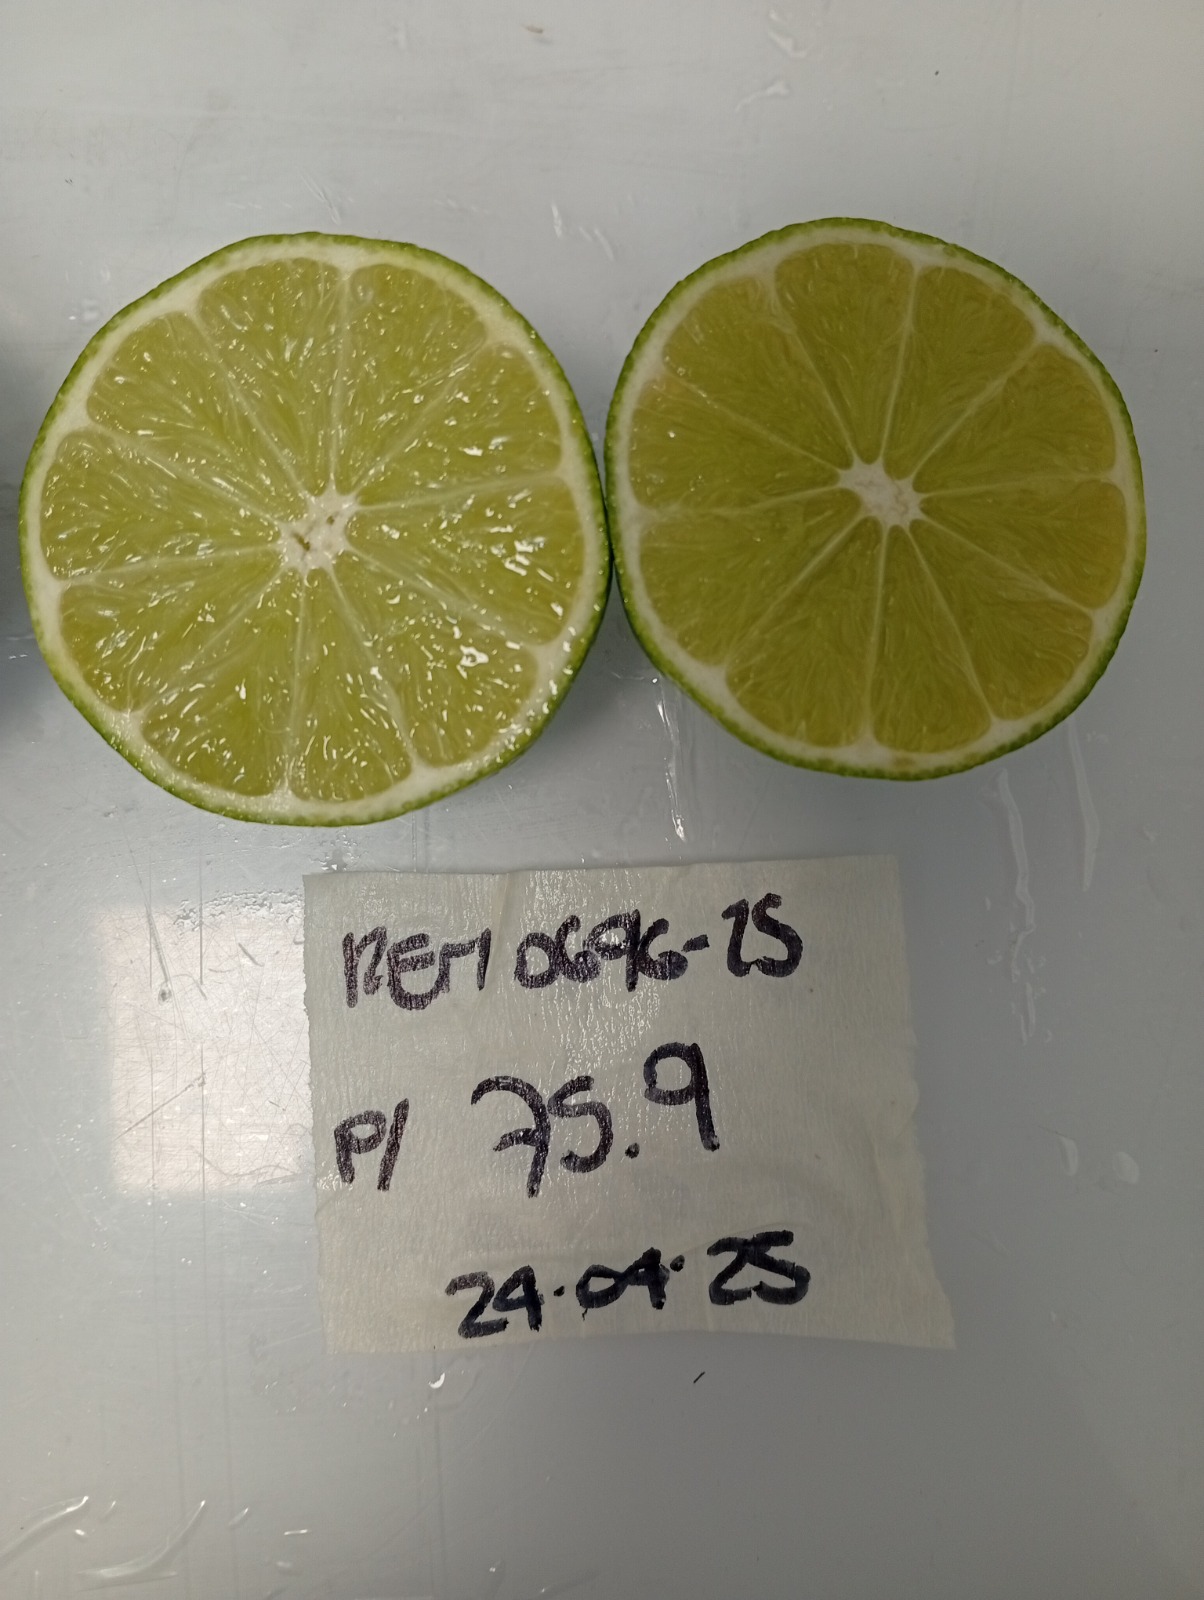 REM 0696-25
P/ 75.9
24.04.25